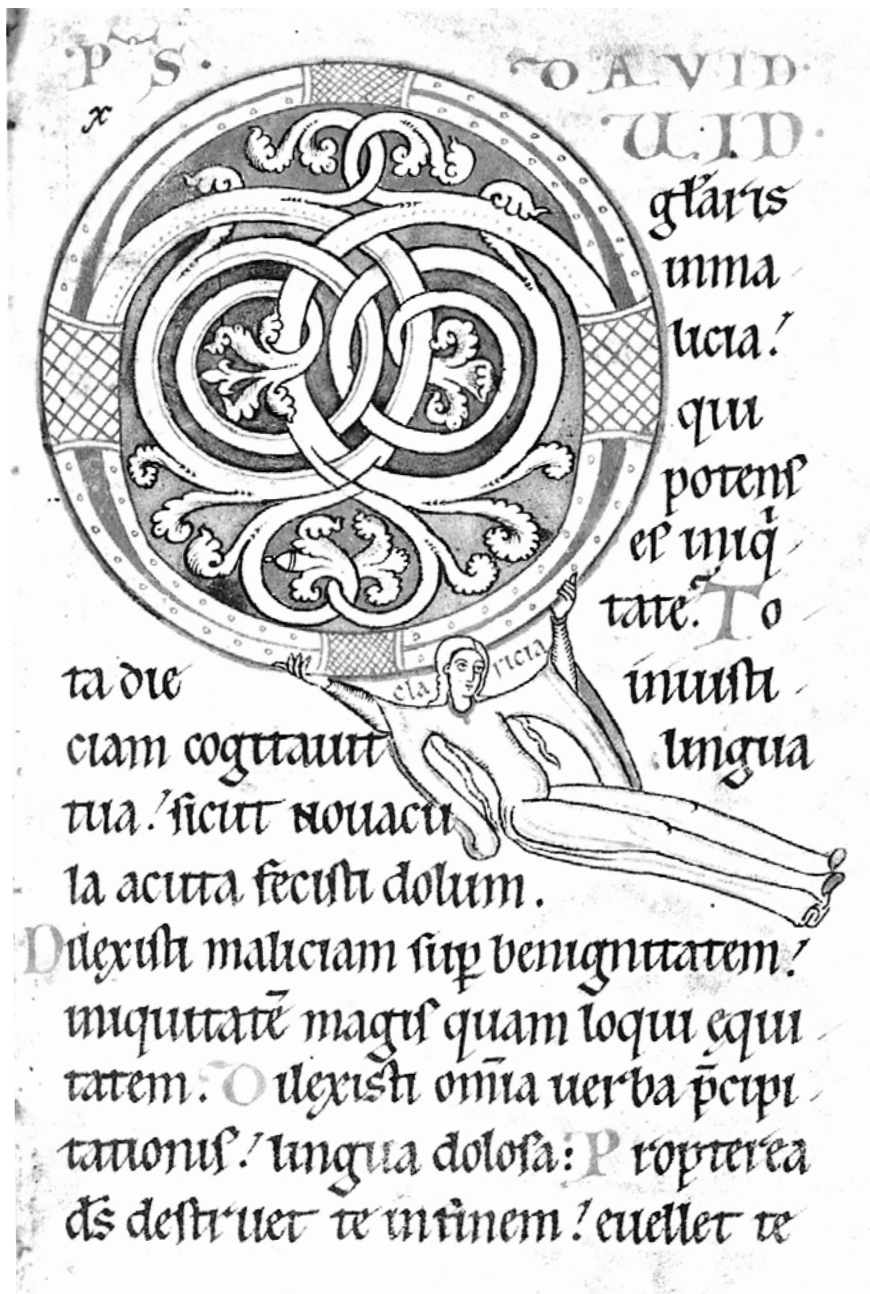 PS. DAVID.
x UID.
Q głaris
in ma
licia!
qui
potens
es iniq
tate. To
ta die cla ricia iniusti
ciam cogitauit lingua
tua! sicut nouacu
la acuta fecisti dolum.
Dilexisti maliciam sup benignitatem!
iniquitatē magis quam loqui ęqui
tatem. Dilexisti om̄ia uerba p̄cipi
tationis! lingua dolosa: Propterea
d̄s destruet te in finem! euellet te